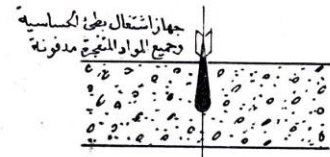 جهاز اشتعال بطئ الحساسية
وجميع المواد المتفجرة مدفونة